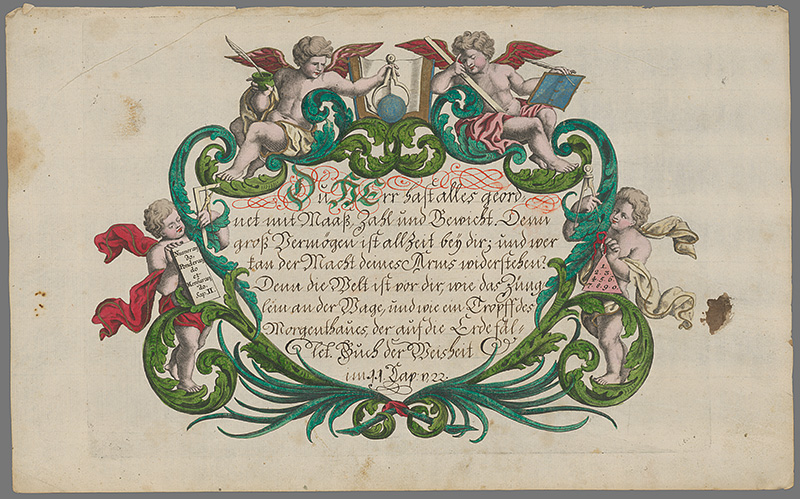 Du HErr hast alles geord-
net mit Maaß, Zahl und Gewicht. Denn
groß Vermögen ist allzeit bey dir; und wer
kan der Macht deines Arms widerstehen?
Denn die Welt ist vor dir, wie das Züng-
lein an der Wage, und wie ein Tropff des
Morgenthaues, der auf die Erde fäl-
let. Buch der Weisheit
im 11. Cap. v. 22.
Numeran
do.
Ponderan
do
et
Mensuran
do.
Sap. II.
1.
2.3.
4.5.6.
7.8.9.0.